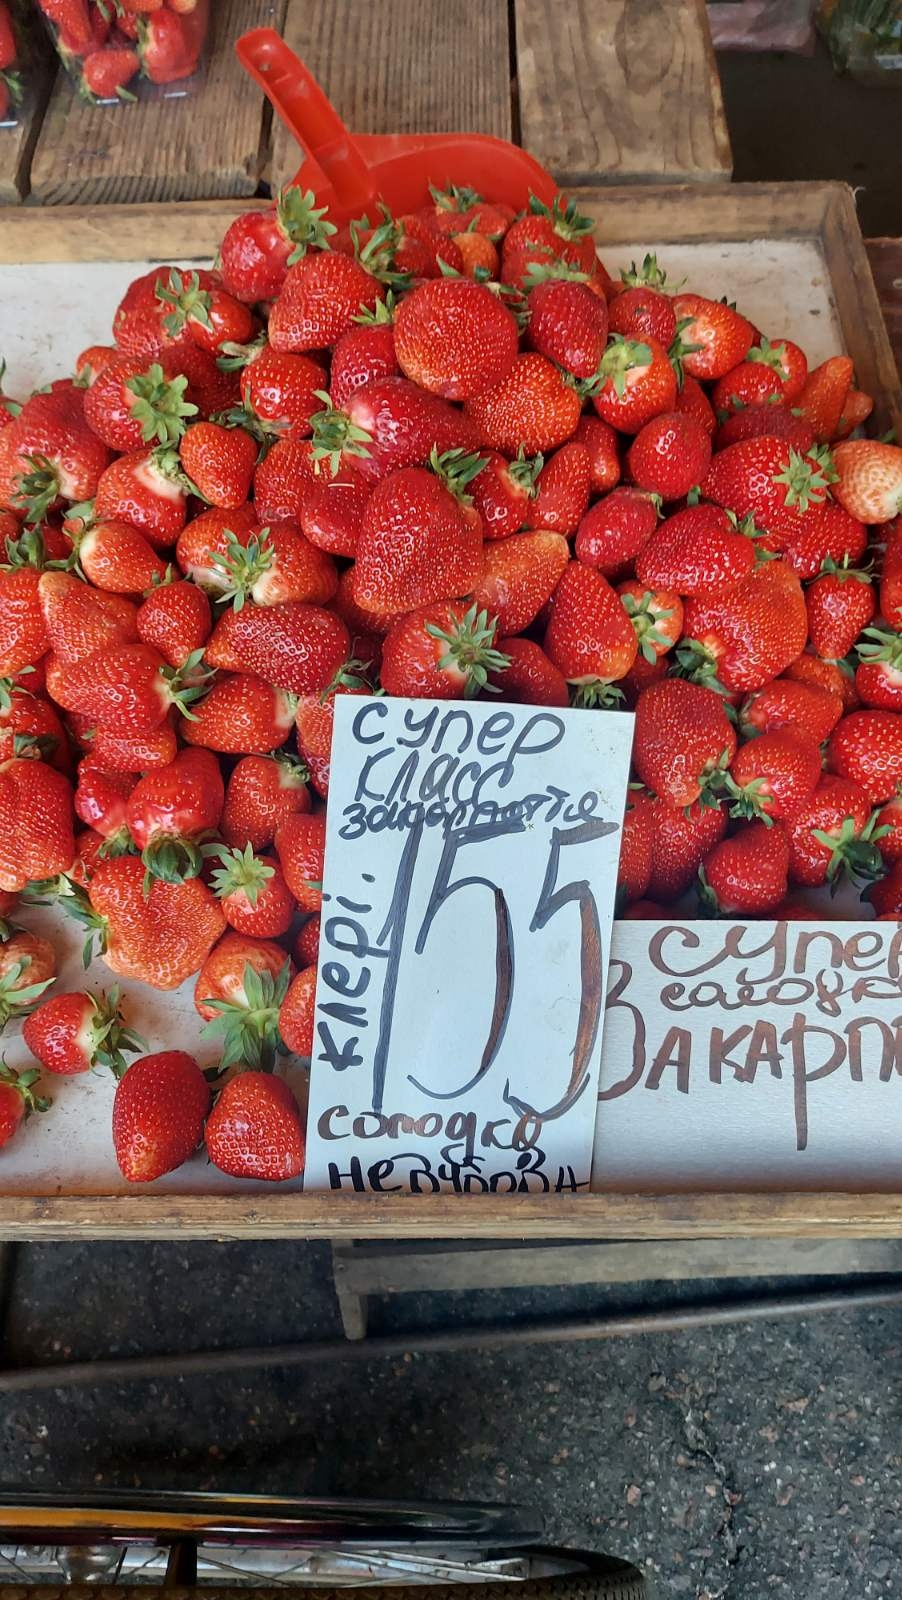 супер
класс
закарпаття
155
клері.
солодка
Супер
солодк
ЗАКАРП